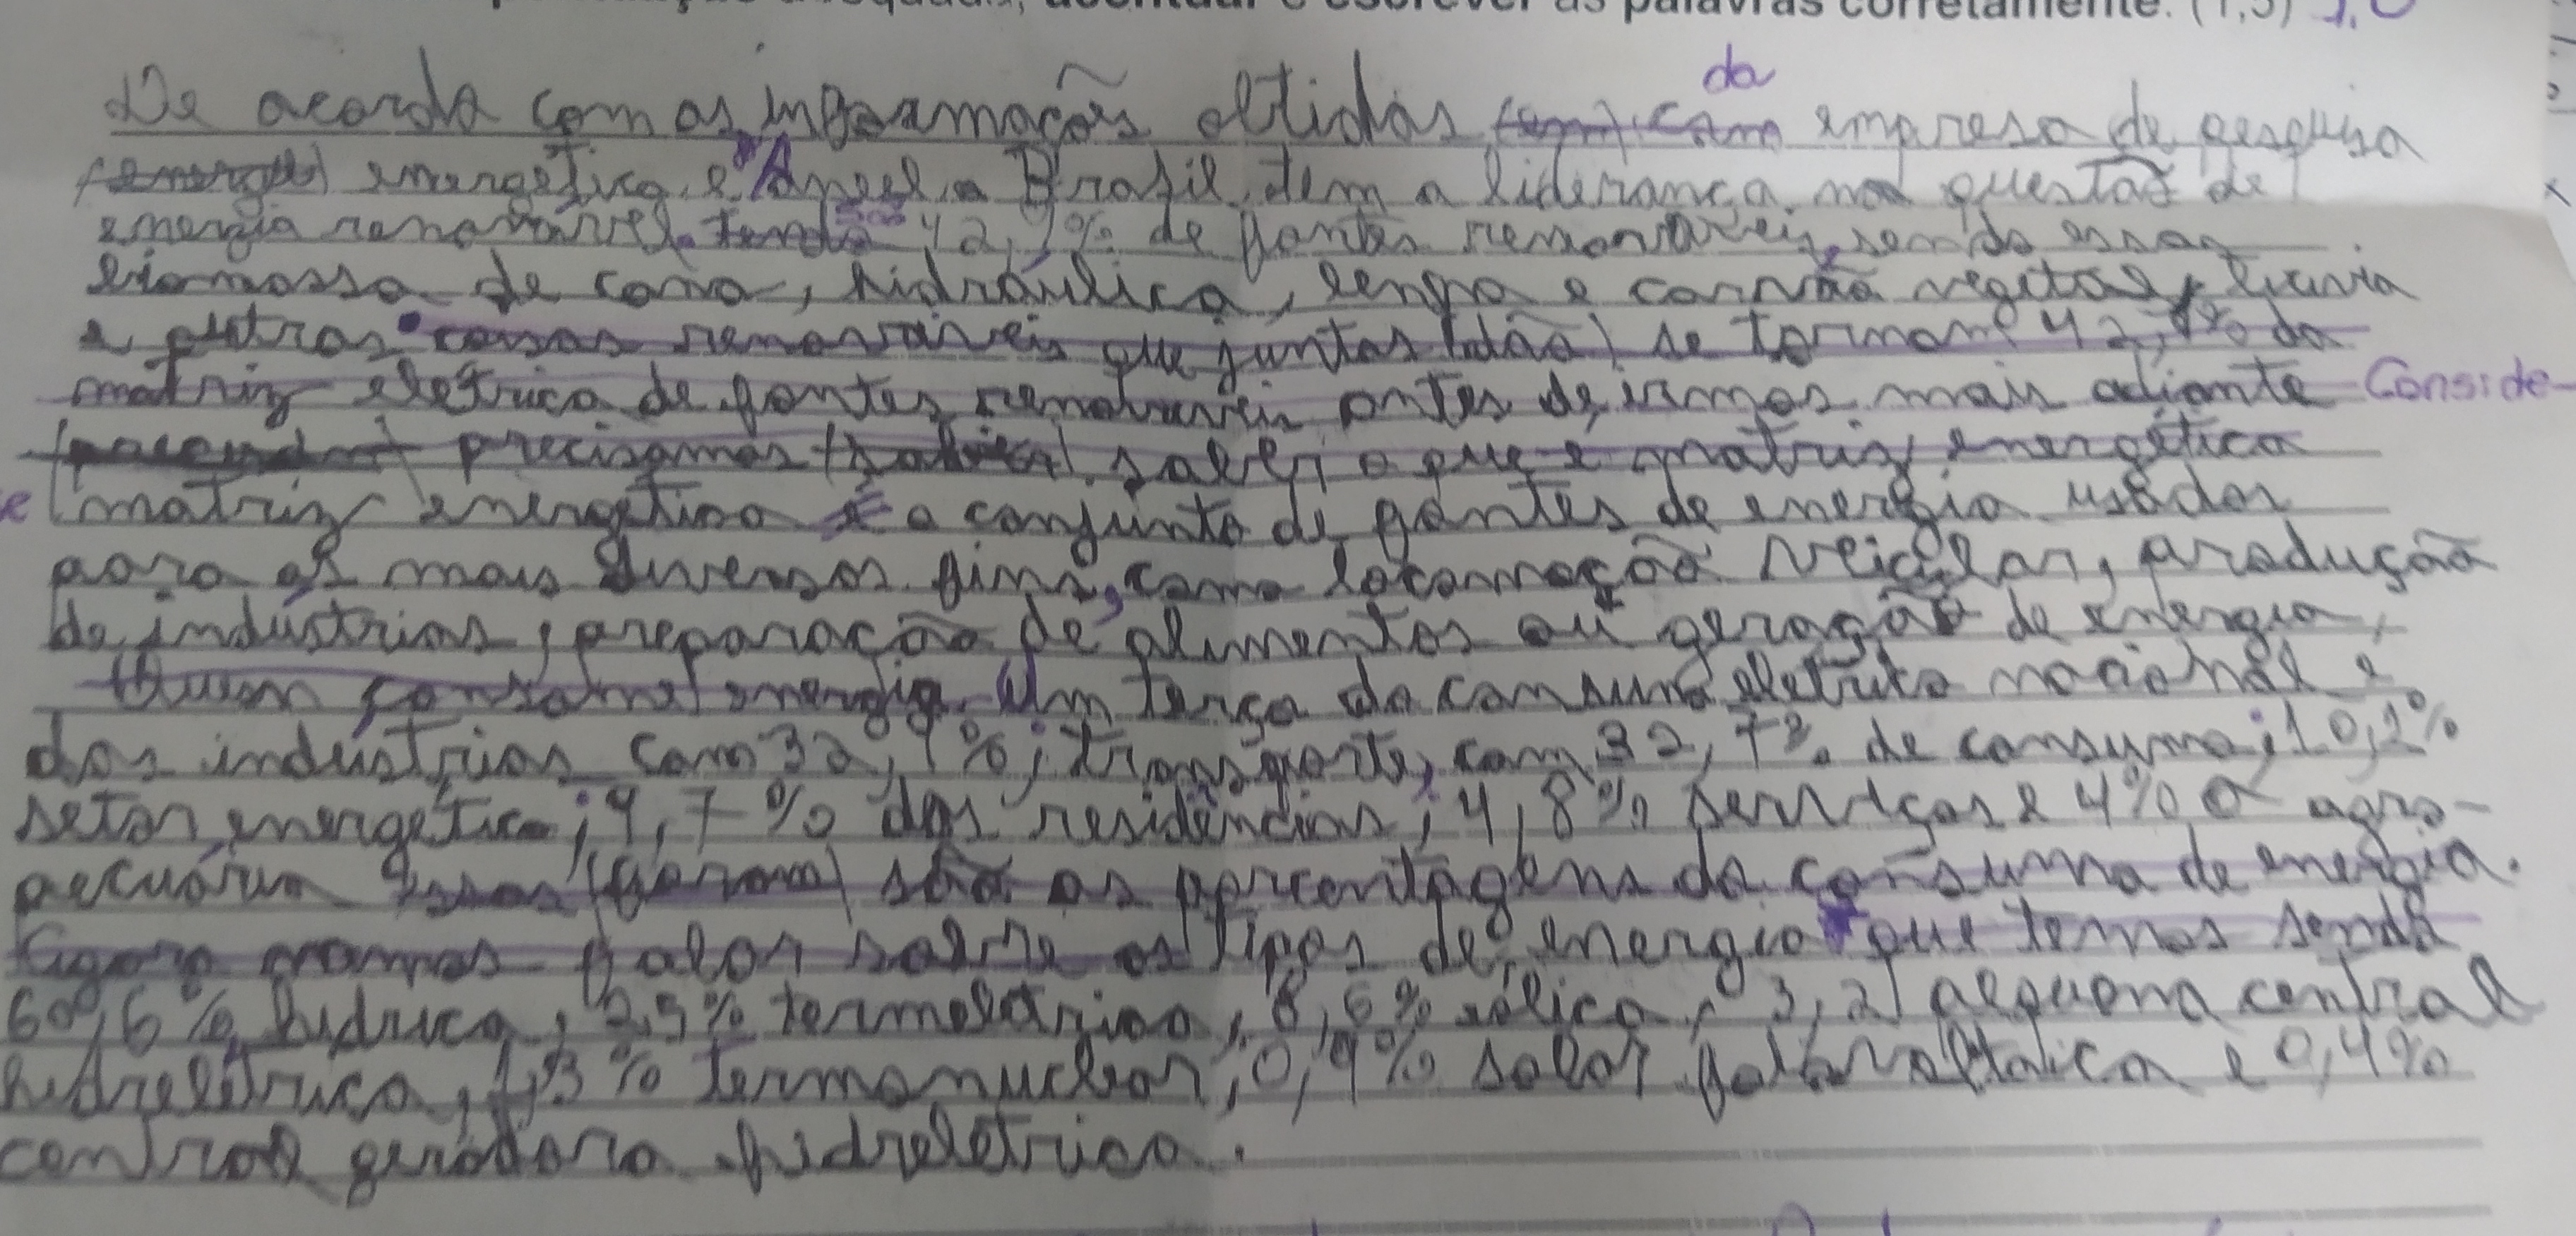 acentuar e escrever as palavras corretamente. (1,5) 1,0
da
De acordo com as informações obtidas (em) com empresa de pesquisa
energética e Aneel o Brasil tem a liderança na questão de
energia renovável tendo 42,9% de fontes renováveis, sendo essas
biomassa de cana, hidráulica, lenha e carvão vegetal, lixivia
e outras coisas renováveis que juntas (dão) se tornam 42,9% da
matriz eletrica de fontes renováveis antes de irmos mais adiante Conside-
precisamos saber o que é matriz energética
se matriz energetica é o conjunto de fontes de energia usadas
para os mais diversos fins, como locomoção veicular, produção
de indústrias, preparação de alimentos ou geração de energia,
Quem consome energia. Um terço do consumo eletrico nacional é
das indústrias com 32,9%; transporte, com 32,7% de consumo; 10,1%
setor energético; 9,7% das residências; 4,8% serviços e 4% a agro-
pecuária essas (foram) são as porcentagens do consumo de energia.
Agora vamos falar sobre os tipos de energia que temos sendo
60,6% hídrica, termeletrica, 8,6% eólica, 3,2 pequena central
hidreletrica, 1,3% termonuclear, 0,9% solar e 0,4%
central geradora hidreletrica.